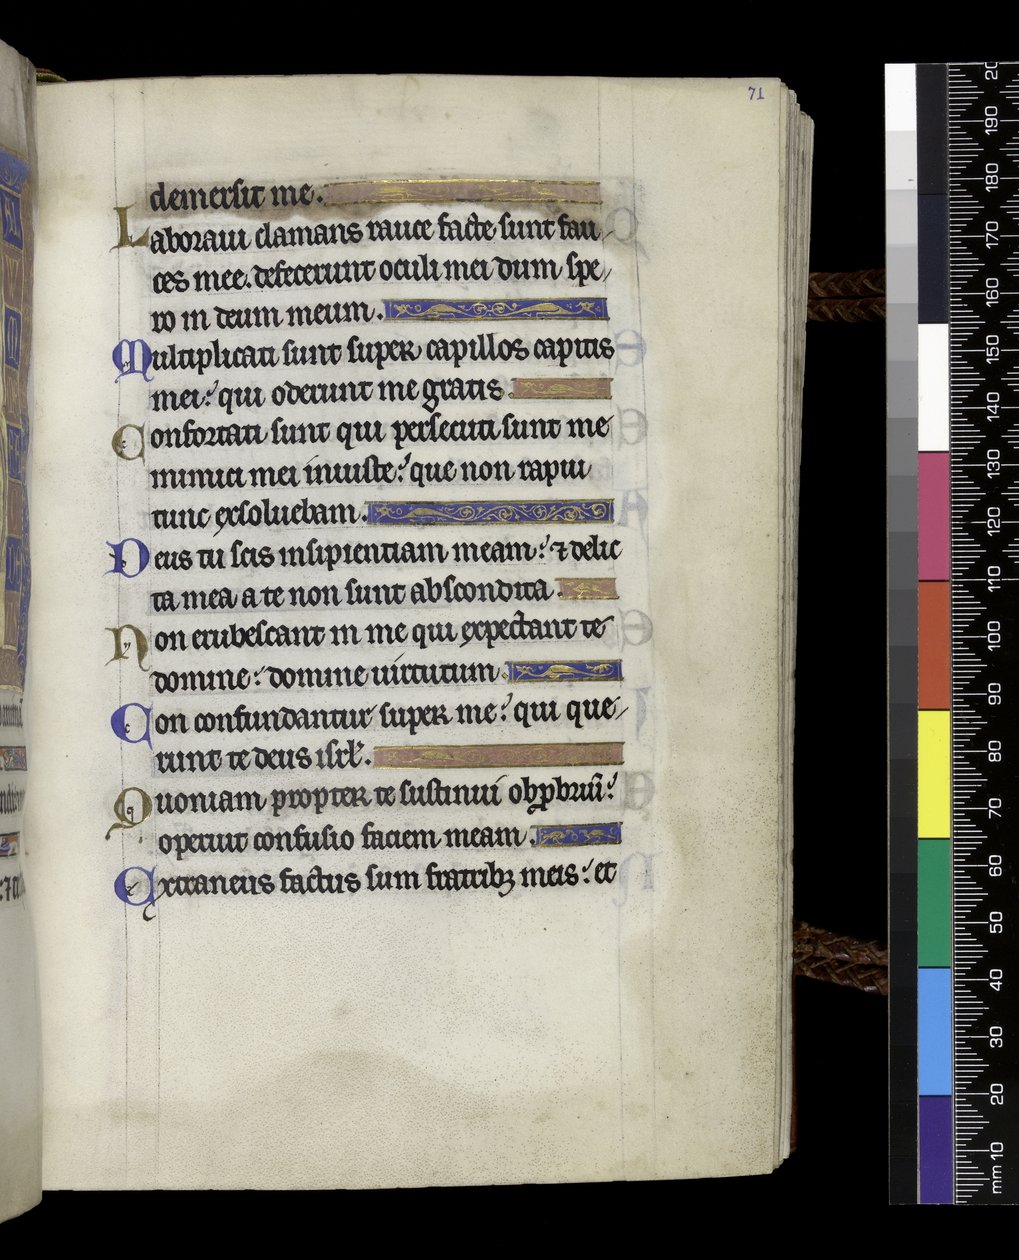 71
demersit me.
Laboraui clamans rauce facte sunt fau
ces mee. defecerunt oculi mei dum spe
ro in deum meum.
Multiplicati sunt super capillos capitis
mei: qui oderunt me gratis.
Confortati sunt qui persecuti sunt me
inimici mei iniuste: que non rapui
tunc exsoluebam.
Deus tu scis insipientiam meam: ⁊ delic
ta mea a te non sunt abscondita.
Non erubescant in me qui expectant te
domine: domine uirtutum.
Non confundantur super me: qui que
runt te deus isrl'.
Quoniam propter te sustinui obꝓbriū:
operuit confusio faciem meam.
Extraneus factus sum fratribꝫ meis: et
200
190
180
170
160
150
140
130
120
110
100
90
80
70
60
50
40
30
20
mm 10